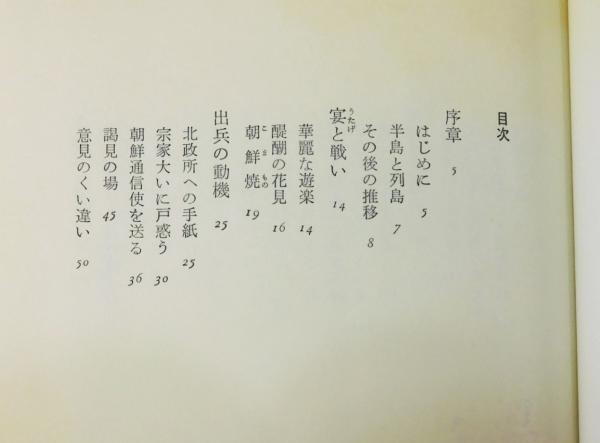 目次
序章 5
はじめに 5
半島と列島 7
その後の推移 8
宴と戦い 14
うたげ
華麗な遊楽 14
醍醐の花見 16
朝鮮焼 19
こまもの
出兵の動機 25
北政所への手紙 25
宗家大いに戸惑う 30
朝鮮通信使を送る 36
謁見の場 45
意見のくい違い 50